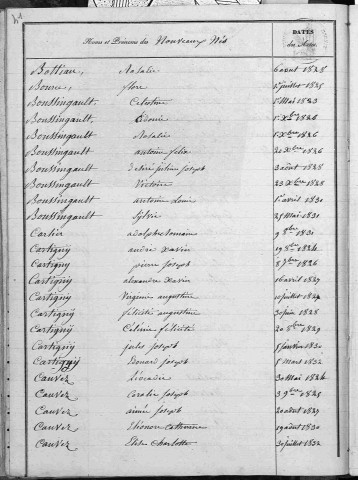 Noms et Prénoms des Nouveaux Nés
DATES
des Actes.
Bottiau, Rosalie 6 aout 1828
Boure, flore juillet 1825
Boussingault Celestine mai 1823
Boussingault Edonie Xbre 1826
Boussingault Rosalie Xbre 1826
Boussingault antoine felix 20 Xbre 1826
Boussingault desiré julien joseph 3 aout 1828
Boussingault Victoire 23 Xbre 1828
Boussingault antoine louis avril 1830
Boussingault Sylvie 25 mai 1831
Cartier adolphe romain 9 8bre 1830
Cartigny andré Xavier 19 8bre 1824
Cartigny pierre joseph 8 7bre 1826
Cartigny alexandre Xavier 16 avril 1827
Cartigny Virginie augustine juillet 1829
Cartigny félicité augustine 30 juin 1828
Cartigny Célinie félicité 20 8bre 1829
Cartigny jules joseph 5 janvier 1830
Cartigny Léonard joseph 5 mars 1832
Cauvez Léocadie 30 mai 1826
Cauvez Coralie joseph 3 9bre 1825
Cauvez aimée joseph 20 aout 1829
Cauvez Eléonore Catherine 19 aout 1830
Cauvez Elise Charlotte 30 juillet 1832